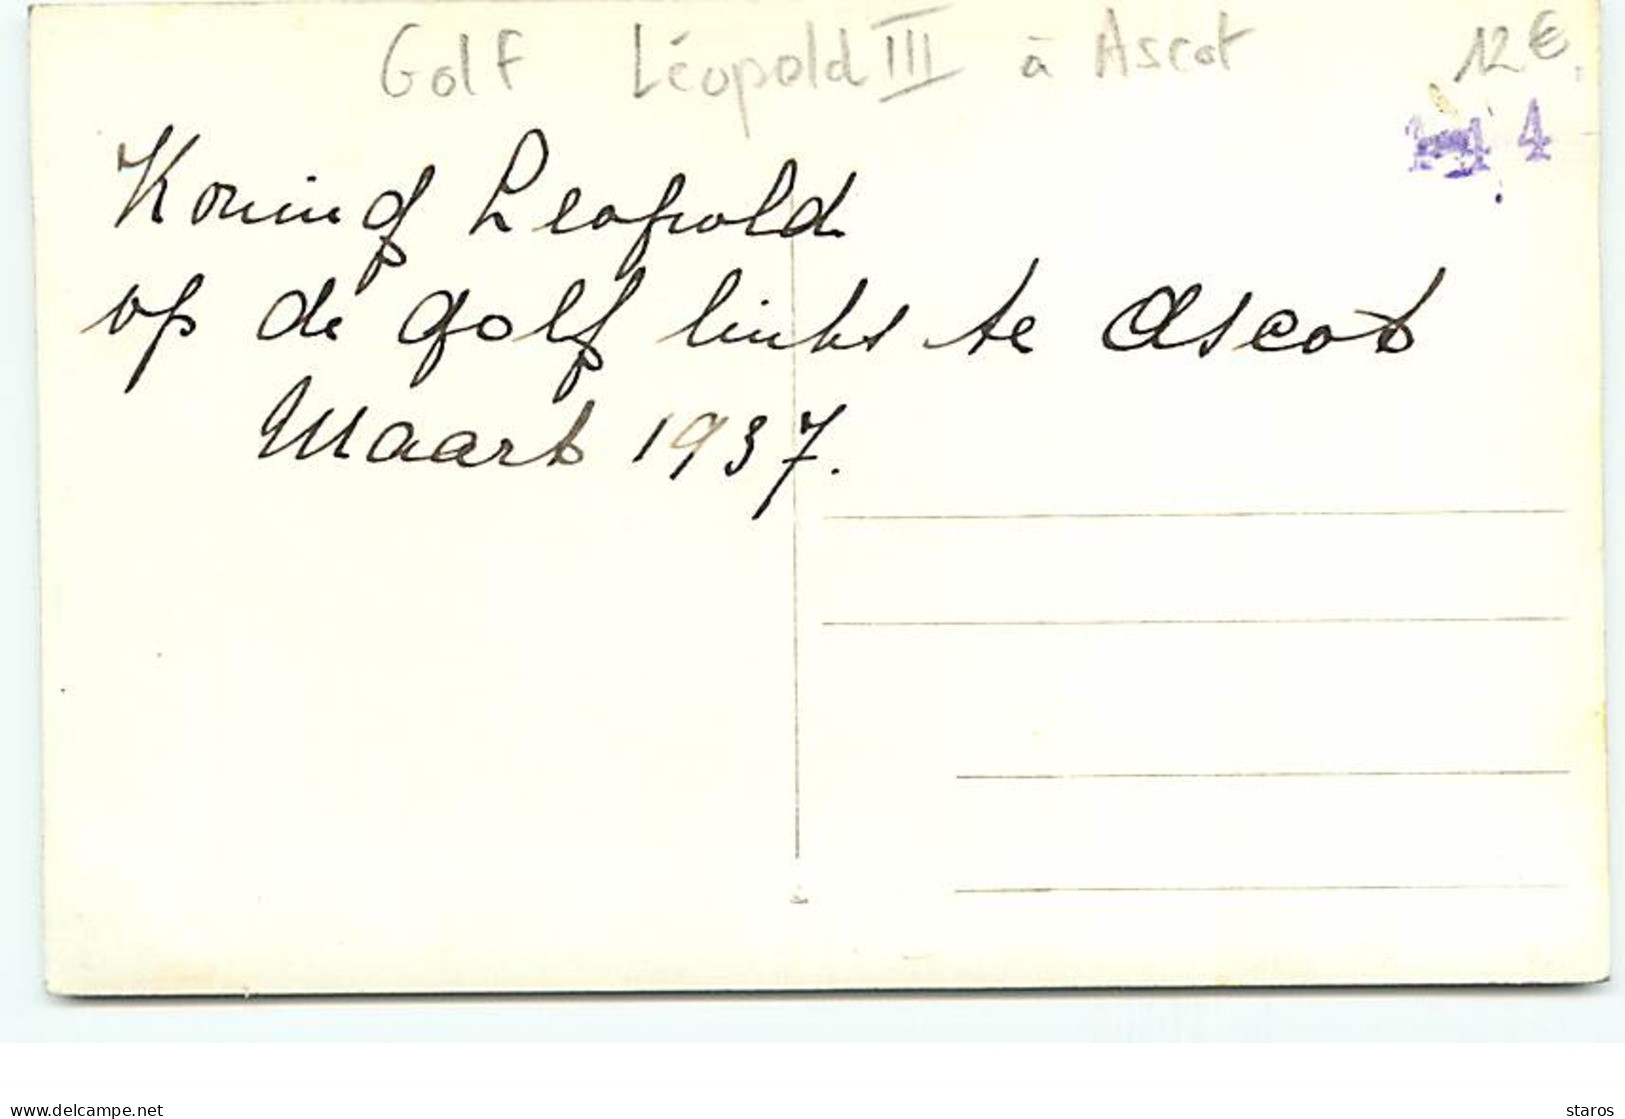 Golf Léopold III à Ascot 12€
4
Koning Leopold
op de golf links te Ascot
Maart 1937.
www.delcampe.net
staros